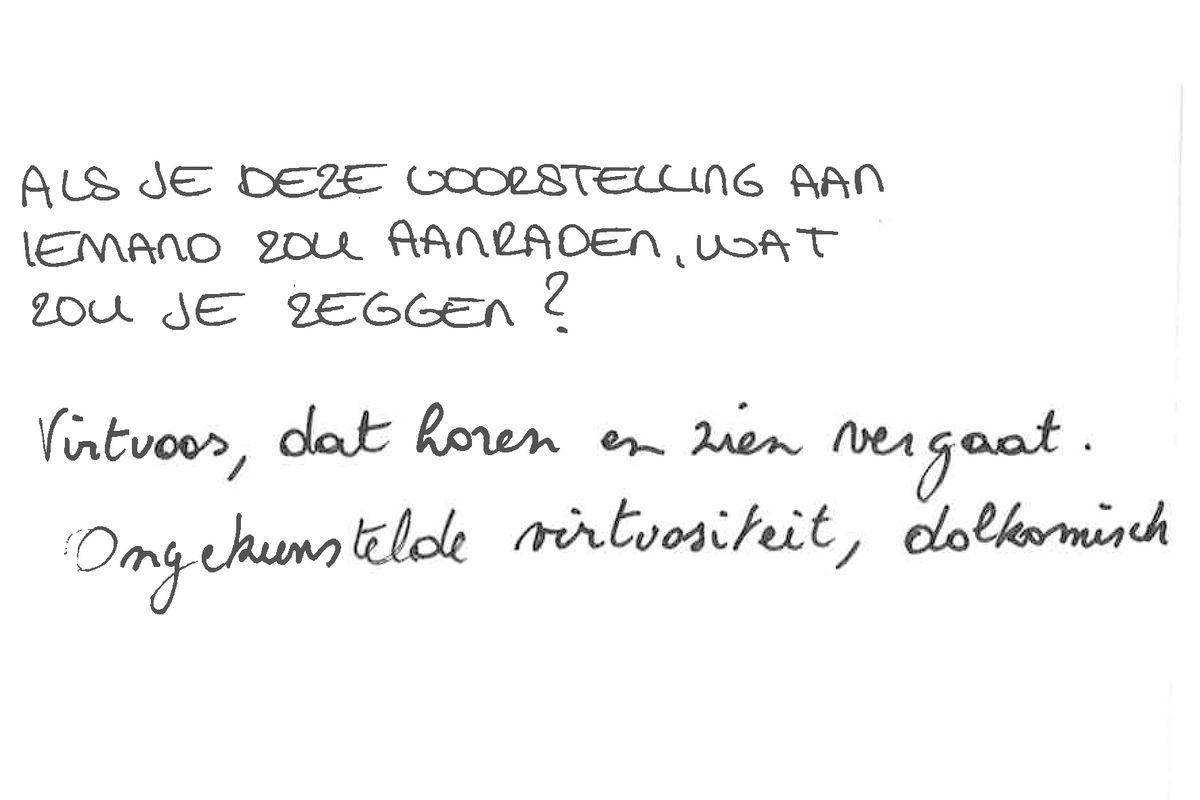 ALS JE DEZE VOORSTELLING AAN
IEMAND ZOU AANRADEN, WAT
ZOU JE ZEGGEN?
Virtuoos, dat horen en zien vergaat.
Ongekunstelde virtuositeit, dolkomisch